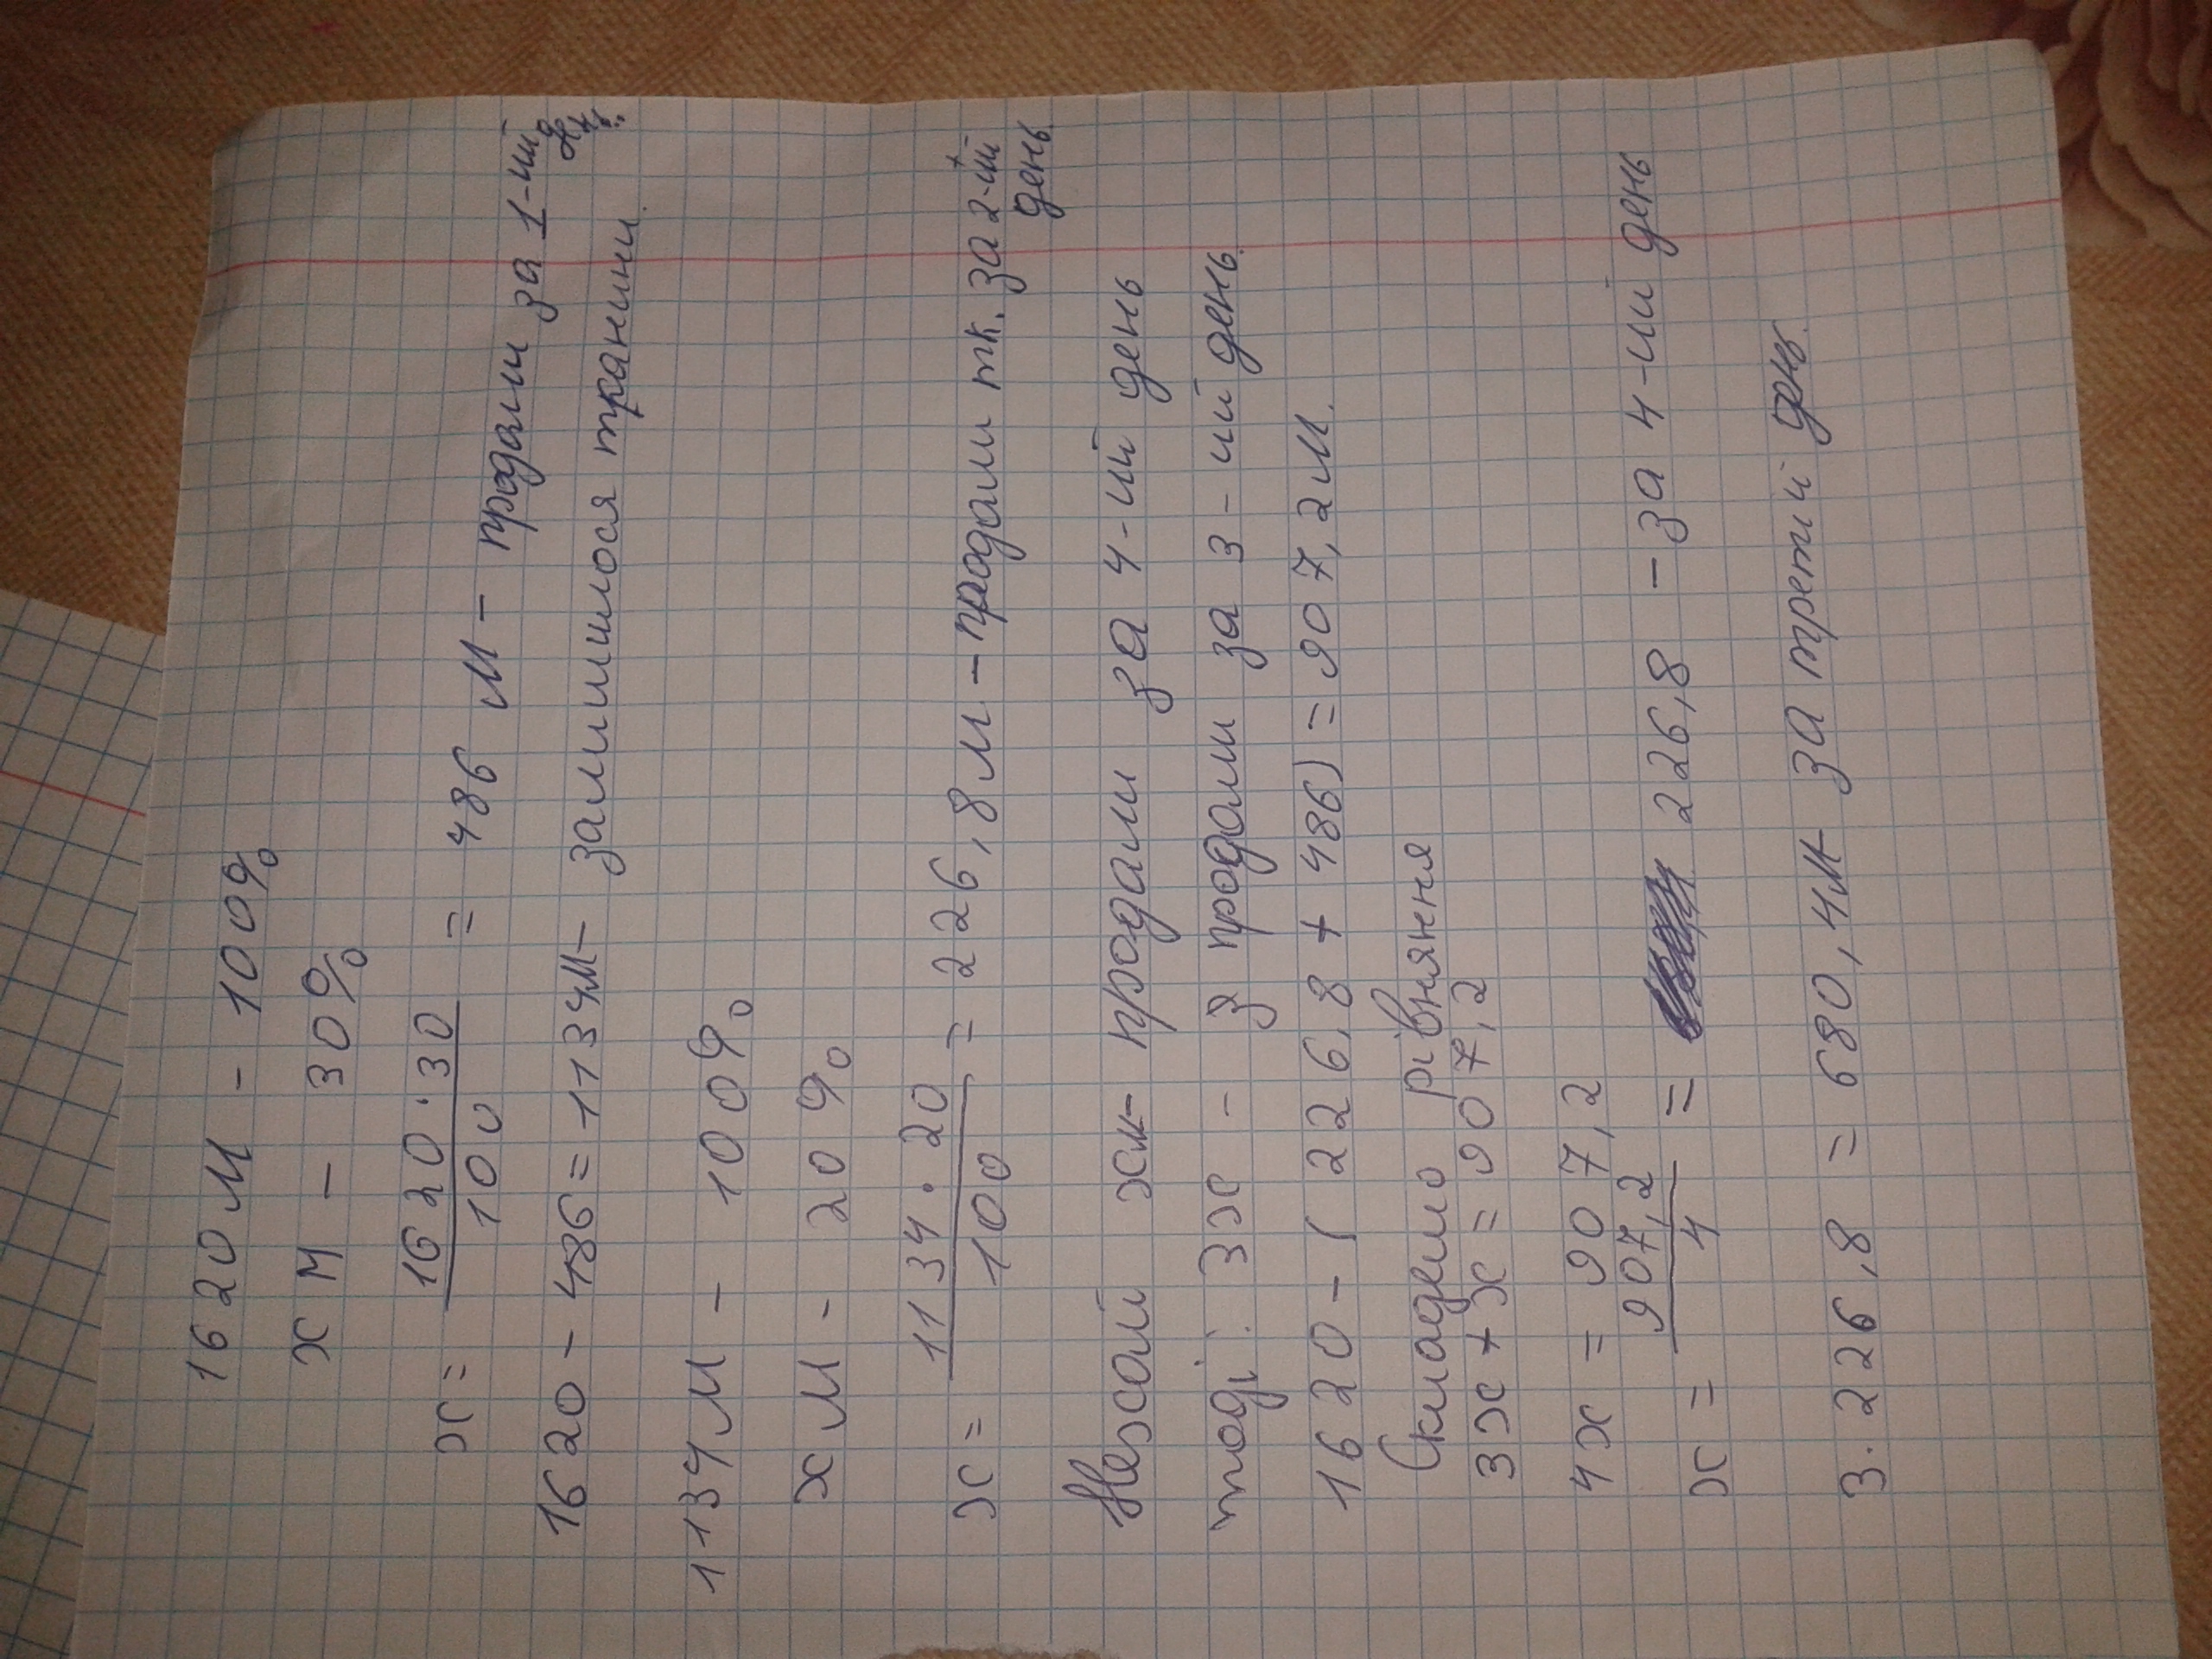 1620 м - 100%
х м - 30%
х = 1620 · 30 / 100 = 486 м - продали за 1-ий
1620 - 486 = 1134м - залишилося тканини.
1134 м - 100%
х м - 20%
х = 1134 · 20 / 100 = 226,8 м - продали тк. за 2-ий
день.
Нехай хм - продали за 4-ий день
тоді: 3х - продали за 3-ий день.
1620 - (226,8 + 486) = 907,2 м.
Складемо рівняння
3х + х = 907,2
4х = 907,2
х = 907,2 / 4 = 226,8 - за 4-ий день
3 · 226,8 = 680,4м - за третій день.